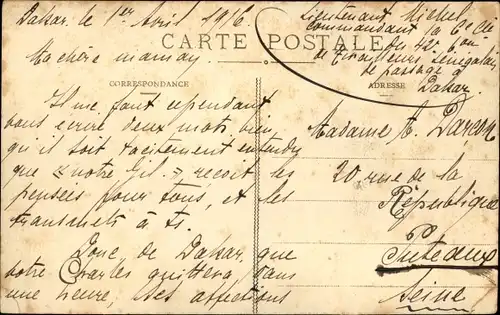 Dakar le 1er Avril 1916.
Lieutenant Michel
commandant la 6e Cie
du 42e bon
de Tirailleurs Sénégalais
de passage à
Dakar
CARTE POSTALE
Ma chère maman
CORRESPONDANCE
ADRESSE
Il me faut cependant
vous écrire deux mots bien
qu'il soit tacitement entendu
que « notre Gil » reçoit les
pensées pour tous, et les
transmets à ts.
Donc de Dakar que
votre Charles quittera dans
une heure, ses affections
Madame A.
20 rue de la
République
Puteaux
Seine